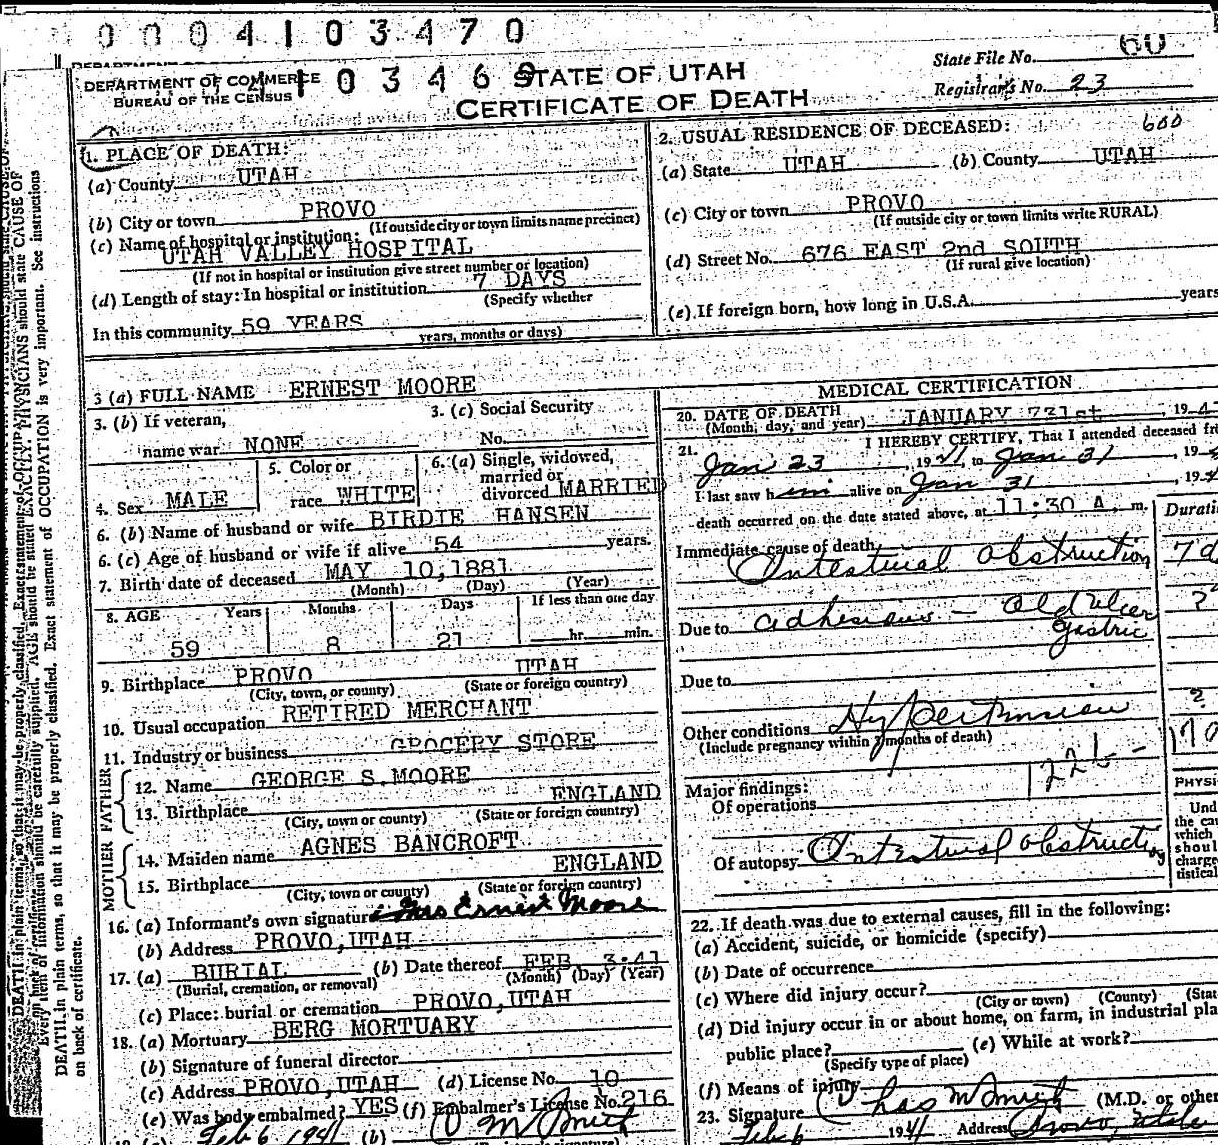 0004103470
State File No. 60
DEPARTMENT OF COMMERCE
BUREAU OF THE CENSUS
STATE OF UTAH
Registrar's No. 23
CERTIFICATE OF DEATH
1. PLACE OF DEATH:
(a) County UTAH
(b) City or town PROVO
(If outside city or town limits name precinct)
(c) Name of hospital or institution:
UTAH VALLEY HOSPITAL
(If not in hospital or institution give street number or location)
(d) Length of stay: In hospital or institution 7 DAYS
(Specify whether
In this community 59 YEARS
years, months or days)
2. USUAL RESIDENCE OF DECEASED: 600
(a) State UTAH (b) County UTAH
(c) City or town PROVO
(If outside city or town limits write RURAL)
(d) Street No. 676 EAST 2nd SOUTH
(If rural give location)
(e) If foreign born, how long in U.S.A. years
3 (a) FULL NAME ERNEST MOORE
3. (b) If veteran,
name war NONE
3. (c) Social Security
No.
4. Sex MALE
5. Color or
race WHITE
6. (a) Single, widowed,
married or
divorced MARRIED
6. (b) Name of husband or wife BIRDIE HANSEN
6. (c) Age of husband or wife if alive 54 years.
7. Birth date of deceased MAY 10, 1881
(Month) (Day) (Year)
8. AGE Years Months Days If less than one day
59 8 21 hr. min.
9. Birthplace PROVO UTAH
(City, town, or county) (State or foreign country)
10. Usual occupation RETIRED MERCHANT
11. Industry or business GROCERY STORE
FATHER
12. Name GEORGE S. MOORE
13. Birthplace ENGLAND
(City, town or county) (State or foreign country)
MOTHER
14. Maiden name AGNES BANCROFT
15. Birthplace ENGLAND
(City, town or county) (State or foreign country)
16. (a) Informant's own signature Mrs Ernest Moore
(b) Address PROVO, UTAH
17. (a) BURIAL (b) Date thereof FEB 3-41
(Burial, cremation, or removal) (Month) (Day) (Year)
(c) Place: burial or cremation PROVO, UTAH
18. (a) Mortuary BERG MORTUARY
(b) Signature of funeral director
(c) Address PROVO, UTAH (d) License No. 10
(e) Was body embalmed? YES (f) Embalmer's License No. 216
Feb 6 1941 (b)
MEDICAL CERTIFICATION
20. DATE OF DEATH JANUARY 31st, 19
(Month, day, and year)
21. I HEREBY CERTIFY, That I attended deceased
Jan 23, 1941, to Jan 31, 19
I last saw him alive on Jan 31, 194
death occurred on the date stated above, at 11:30 A. m.
Immediate cause of death
Intestinal Obstruction 7 d
Due to adhesions - Old Ulcer
gastric
Due to
Other conditions Hypertension
(Include pregnancy within 3 months of death)
Major findings:
Of operations
Of autopsy Intestinal obstruction
22. If death was due to external causes, fill in the following:
(a) Accident, suicide, or homicide (specify)
(b) Date of occurrence
(c) Where did injury occur?
(City or town) (County)
(d) Did injury occur in or about home, on farm, in industrial
public place? (e) While at work?
(Specify type of place)
(f) Means of injury
23. Signature Chas M Smith (M.D. or other
Feb 6 1941 Address Provo, Utah